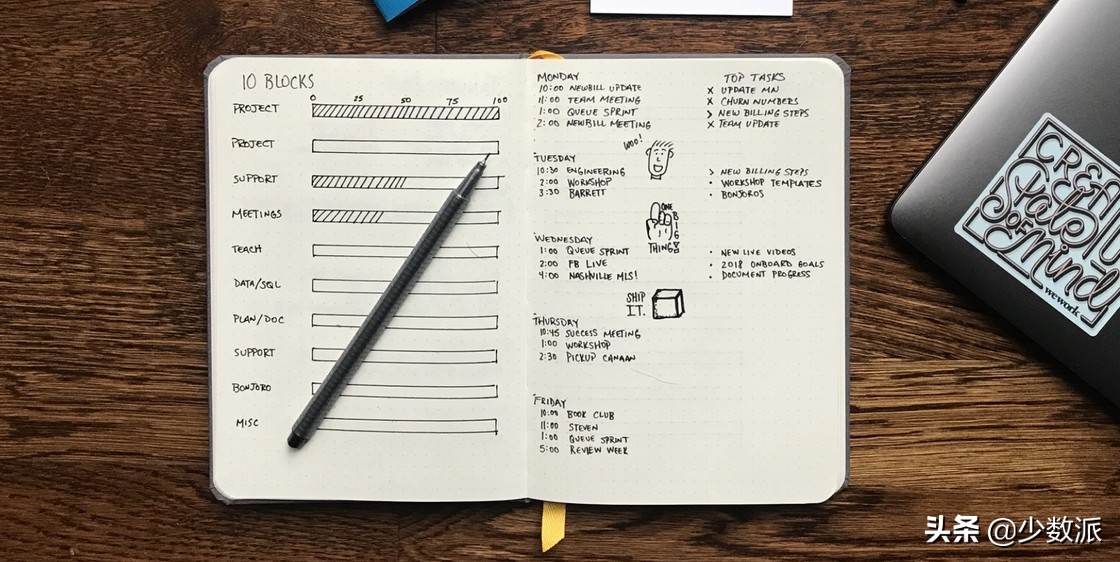 10 BLOCKS
0 25 50 75 100
PROJECT
PROJECT
SUPPORT
MEETINGS
TEACH
DATA/SQL
PLAN/DOC
SUPPORT
BONJORO
MISC
MONDAY
10:00 NEWBILL UPDATE
11:00 TEAM MEETING
1:00 QUEUE SPRINT
2:00 NEWBILL MEETING
TOP TASKS
x UPDATE MN
x CHURN NUMBERS
> NEW BILLING STEPS
x TEAM UPDATE
WOO!
TUESDAY
10:30 ENGINEERING
2:00 WORKSHOP
3:30 BARRETT
> NEW BILLING STEPS
• WORKSHOP TEMPLATES
• BONJOROS
ONE
BIG
THING
WEDNESDAY
1:00 QUEUE SPRINT
2:00 FB LIVE
4:00 NASHVILLE MLS!
• NEW LIVE VIDEOS
• 2018 ONBOARD GOALS
• DOCUMENT PROGRESS
SHIP
IT.
THURSDAY
10:45 SUCCESS MEETING
1:00 WORKSHOP
2:30 PICKUP CANAAN
FRIDAY
10:00 BOOK CLUB
11:00 STEVEN
1:00 QUEUE SPRINT
5:00 REVIEW WEEK
OF
Mind
wework
头条 @少数派